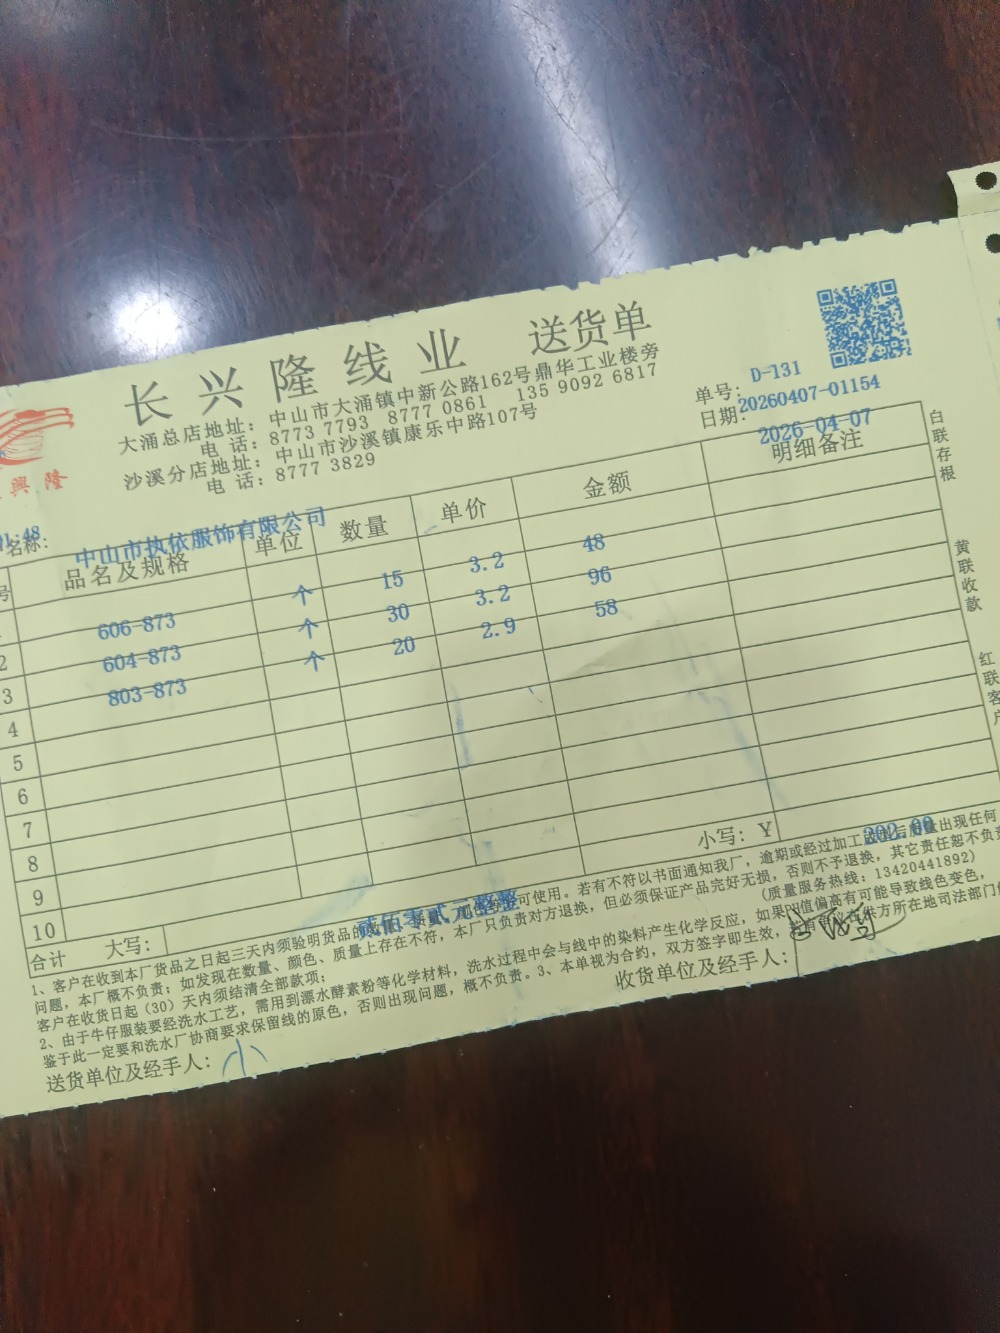 长兴隆线业 送货单
大涌总店地址：中山市大涌镇中新公路162号鼎华工业楼旁
电 话：8773 7793 8777 0861 135 9092 6817
沙溪分店地址：中山市沙溪镇康乐中路107号
电 话：8777 3829
興隆
D-131
单号：20260407-01154
日期：2026-04-07
:48
名称：中山市执依服饰有限公司
号 品名及规格 单位 数量 单价 金额 明细备注
606-873 个 15 3.2 48
2 604-873 个 30 3.2 96
3 803-873 个 20 2.9 58
4
5
6
7
8
9
10
合计 大写：贰佰零贰元整 小写：￥ 202.00
1、客户在收到本厂货品之日起三天内须验明货品 可使用。若有不符以书面通知我厂，逾期或经过加工 后质量出现任何
问题，本厂概不负责；如发现在数量、颜色、质量上存在不符，本厂只负责对方退换，但必须保证产品完好无损，否则不予退换，其它责任恕不负责
客户在收货日起（30）天内须结清全部款项；（质量服务热线：13420441892）
2、由于牛仔服装要经洗水工艺，需用到漂水酵素粉等化学材料，洗水过程中会与线中的染料产生化学反应，如果PH值偏高有可能导致线色变色，
鉴于此一定要和洗水厂协商要求保留线的原色，否则出现问题，概不负责。3、本单视为合约，双方签字即生效， 供方所在地司法部门
送货单位及经手人： 收货单位及经手人：
白联存根 黄联收款 红联客户